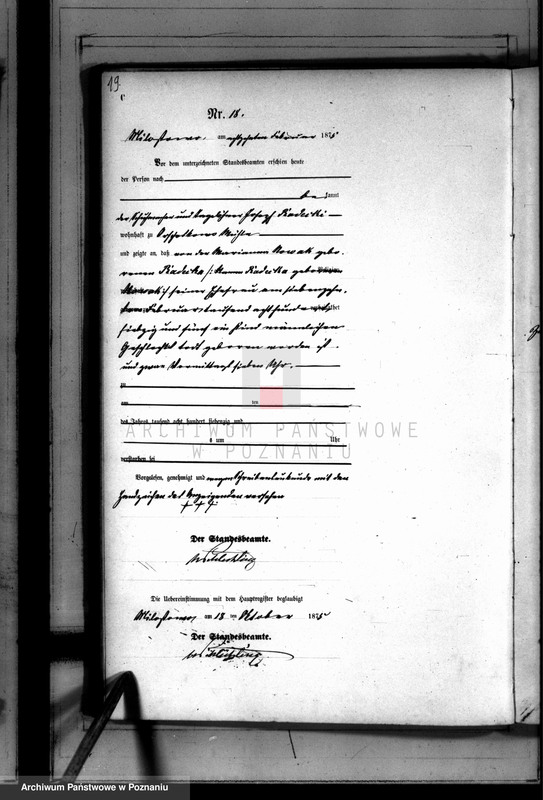 19
C
Nr. 18.
Miloslowo, am achtzehnten Februar 1875
Vor dem unterzeichneten Standesbeamten erschien heute
der Person nach
kannt
der Schuhmacher und Joseph Radecki
wohnhaft zu Mühle
und zeigte an, daß von der Marianna Nowak gebo-
renen Radecka /: Radecka geborenen
Nowak :/ seiner Ehefrau am siebenzehn-
ten Februar tausend acht hundert
siebzig und fünf ein Kind männlichen
Geschlechts todt geboren worden ist
und zwar Vormittags sieben Uhr.
zu
am ten
des Jahres tausend acht hundert siebenzig und
um Uhr
verstorben sei
Vorgelesen, genehmigt und wegen Schreibensunkunde mit den
Handzeichen des Anzeigenden versehen
+++
Der Standesbeamte.
Die Uebereinstimmung mit dem Hauptregister beglaubigt
am 18 ten Oktober 1875
Der Standesbeamte.
ARCHIWUM PAŃSTWOWE
W POZNANIU
Archiwum Państwowe w Poznaniu